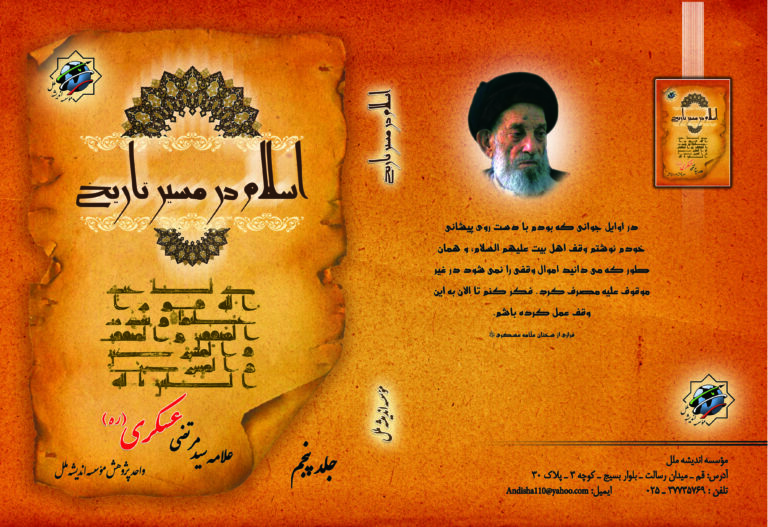 مؤسسه اندیشه ملل
اسلام در مسیر تاریخ
علامه سید مرتضی عسکری (ره)
واحد پژوهش مؤسسه اندیشه ملل
جلد پنجم
اسلام در مسیر تاریخ
مؤسسه اندیشه ملل
اسلام در مسیر تاریخ
در اوایل جوانی که بودم با دست روی پیشانی
خودم نوشتم وقف اهل بیت علیهم السلام، و همان
طور که می دانید اموال وقفی را نمی شود در غیر
موقوف علیه مصرف کرد. فکر کنم تا الان به این
وقف عمل کرده باشم.
فرازی از سخنان علامه عسکری
مؤسسه اندیشه ملل
مؤسسه اندیشه ملل
آدرس: قم ـ میدان رسالت ـ بلوار بسیج ـ کوچه ۳ ـ پلاک ۳۰
تلفن : ۳۷۷۳۵۷۶۹ ـ ۰۲۵ ایمیل: Andisha110@yahoo.com